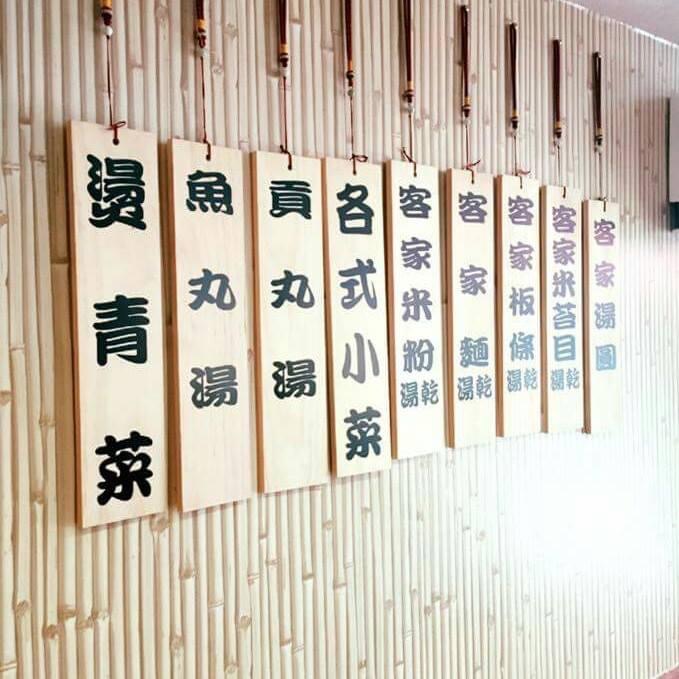 客家湯圓
客家米苔目湯乾
客家板條湯乾
客家麵湯乾
客家米粉湯乾
各式小菜
貢丸湯
魚丸湯
燙青菜